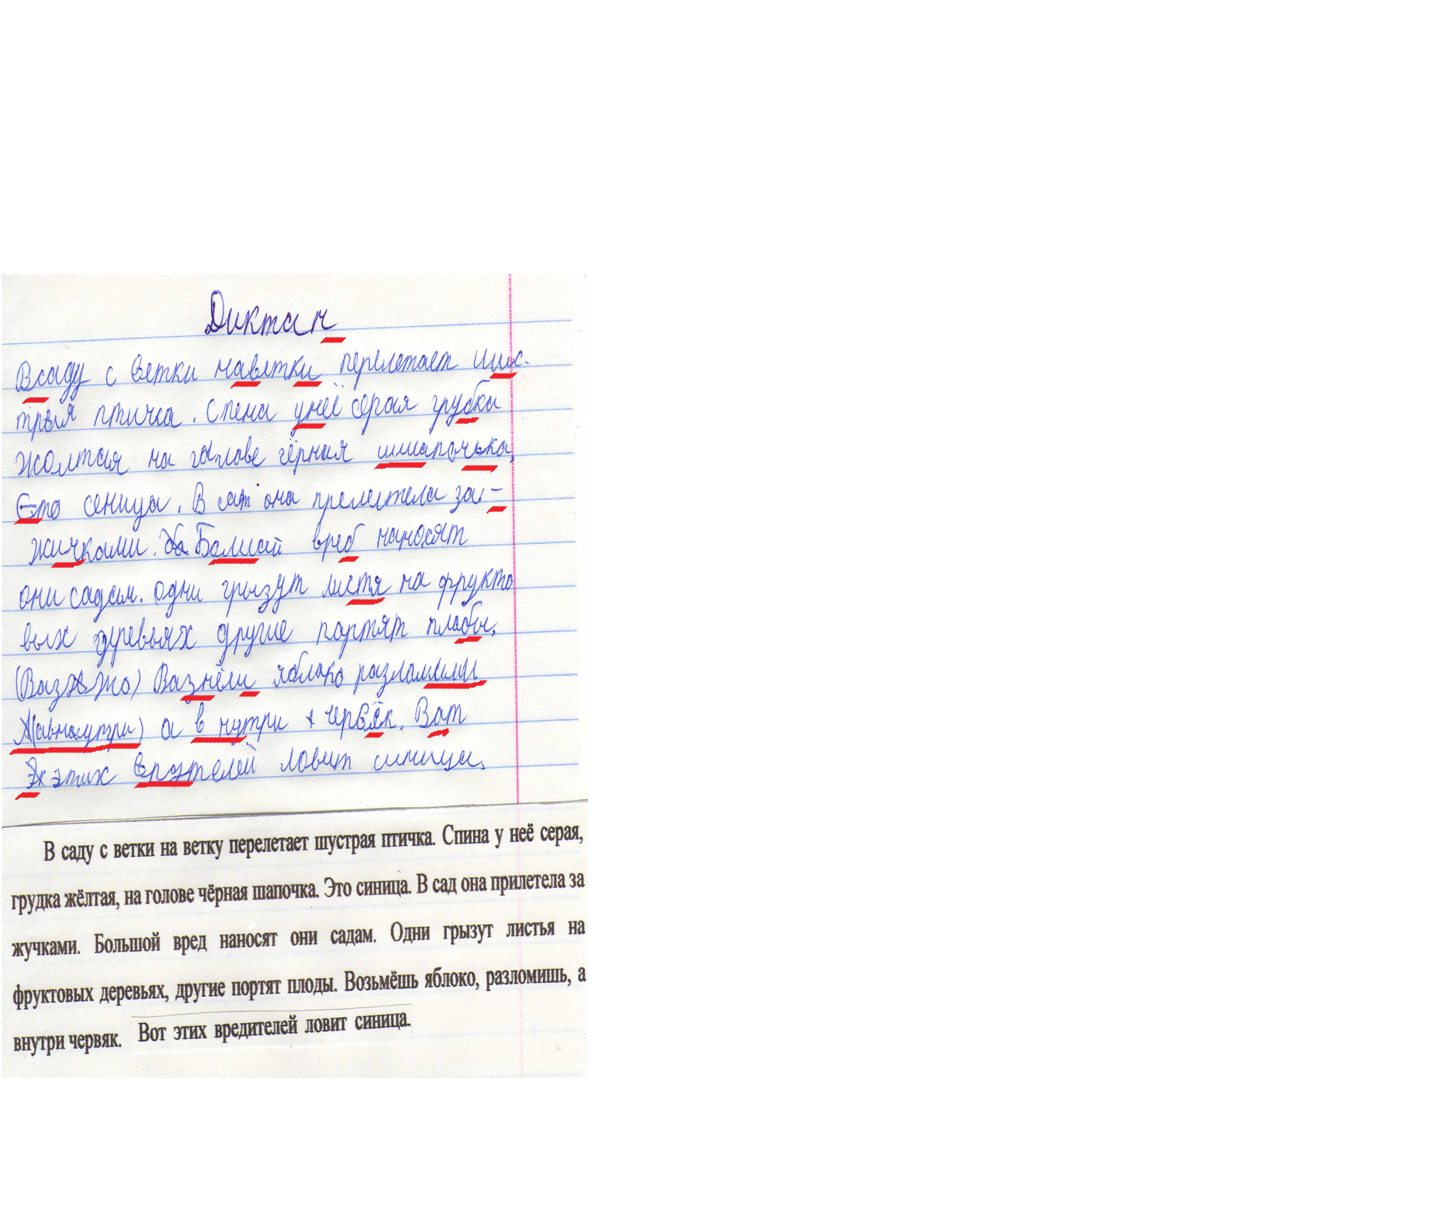 Диктан
Всаду с ветки наветки перелетает шис-
трыя птичка. Спена унеё серая грубка
жолтая на галове чёрная шшапочька,
Ето сеница. В сат она прелетела за-
жичками. Балшой вреб наносят
они садам. одни грызут листя на фрукто
вых деревьях другие портят плабы.
(Вазжжо) Вазнёш яблоко разламиш
а в нутри червёк. Ват
этих врэтелей ловит синица.
В саду с ветки на ветку перелетает шустрая птичка. Спина у неё серая,
грудка жёлтая, на голове чёрная шапочка. Это синица. В сад она прилетела за
жучками. Большой вред наносят они садам. Одни грызут листья на
фруктовых деревьях, другие портят плоды. Возьмёшь яблоко, разломишь, а
внутри червяк. Вот этих вредителей ловит синица.